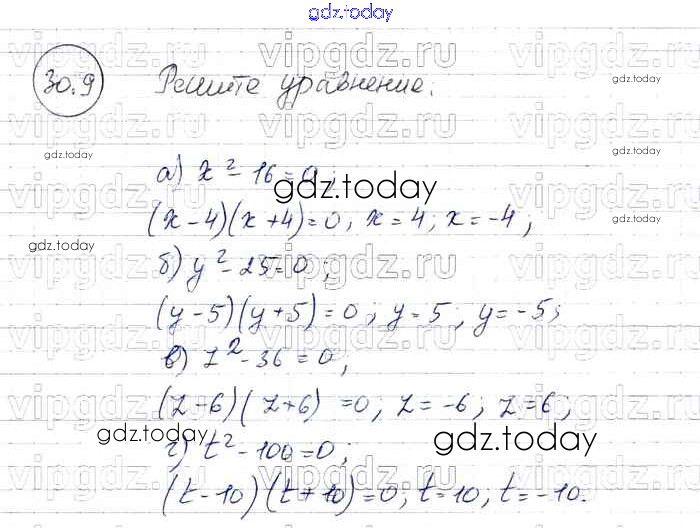 gdz.today
30.9 Решите уравнение.
а) x² - 16 = 0;
(x-4)(x+4)=0; x=4; x=-4;
б) y² - 25 = 0;
(y-5)(y+5)=0; y=5; y=-5;
в) z² - 36 = 0;
(z-6)(z+6)=0; z=-6; z=6;
г) t² - 100 = 0;
(t-10)(t+10)=0; t=10; t=-10.
vipgdz.ru
gdz.today
gdz.today
gdz.today
gdz.today
gdz.today
gdz.today
gdz.today